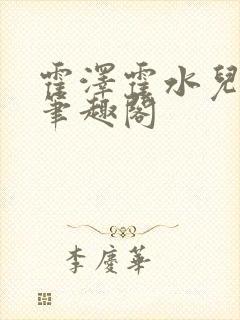 霍澤霍水兒
筆趣閣
李慶華